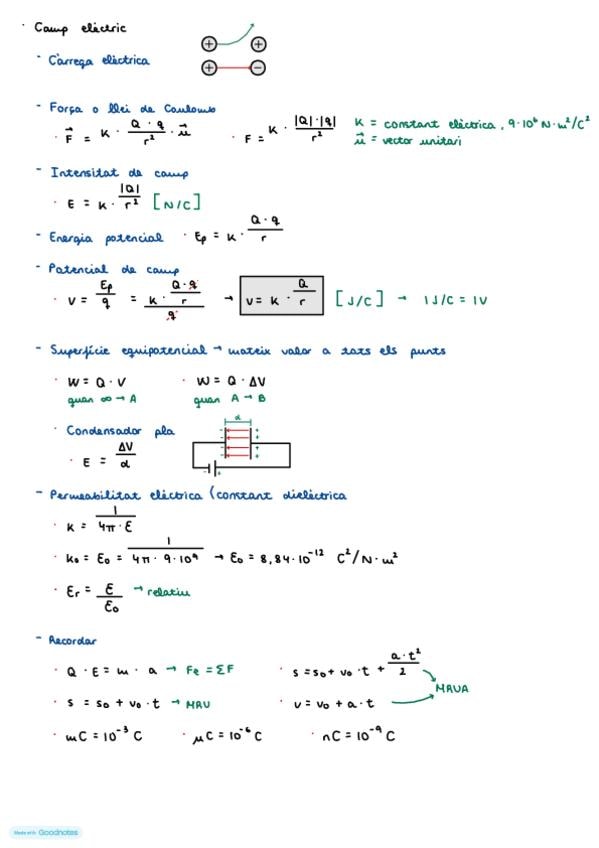 · Camp elèctric
- Càrrega elèctrica
+ +
+ -
- Força o llei de Coulomb
· F⃗ = K · Q · q / r² · u⃗ · F = K · |Q| · |q| / r² K = constant elèctrica, 9·10⁶ N·m²/C²
u⃗ = vector unitari
- Intensitat de camp
· E = K · |Q| / r² [N/C]
- Energia potencial · Ep = K · Q · q / r
- Potencial de camp
· V = Ep / q = K · Q · q / r / q → V = K · Q / r [J/C] → 1 J/C = 1V
- Superfície equipotencial → mateix valor a tots els punts
· W = Q · V · W = Q · ΔV
quan ∞ → A quan A → B
· Condensador pla d
· E = ΔV / d
- Permeabilitat elèctrica (constant dielèctrica
· K = 1 / 4π · ε
· K₀ = ε₀ = 1 / 4π · 9·10⁹ → ε₀ = 8,84·10⁻¹² C²/N·m²
· εr = ε / ε₀ → relatiu
- Recordar
· Q · E = m · a → Fe = ΣF · s = s₀ + v₀ · t + a · t² / 2
· s = s₀ + v₀ · t → MRU · v = v₀ + a · t MRUA
· mC = 10⁻³ C · μC = 10⁻⁶ C · nC = 10⁻⁹ C
Made with Goodnotes